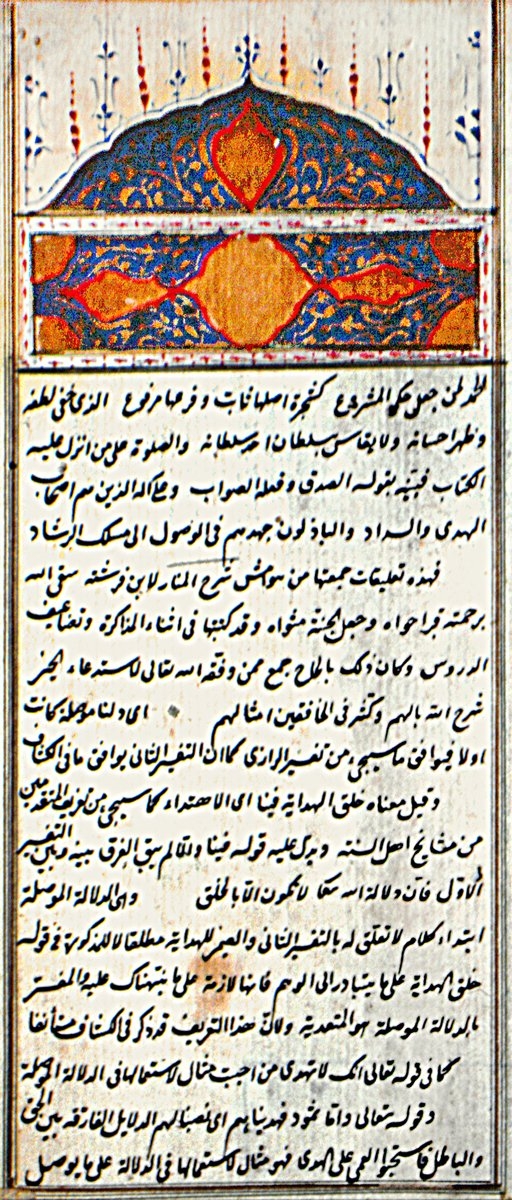 الحمد لمن جعل حكم المشروع كشجرة اصلها ثابت وفرعها مرفوع الذى خفى لطفه
وظهر احسانه ولا يقاس بسلطان احد سلطانه والصلوة على من انزل عليه
الكتاب فبينه بقوله الصدق وفعله الصواب وعلى آله الذين هم اصحاب
الهدى والسداد والباذلون جهدهم فى الوصول الى مسلك الرشاد
فهذه تعليقات جمعتها من هوامش شرح المنار لابن فرشته سقى الله
برحمته ثراه وجعل الجنة مثواه وقد كتبتها فى اثناء المذاكرة وتضاعيف
الدروس وكان ذلك بالحاح جمع ممن وفقه الله تعالى لاستدعاء الخير
شرح الله بالهم وكثر فى الخافقين امثالهم اى دلنا موصلة كانت
اولا فيوافق ما سيجئ من تفسير الرازى كما ان التفسير الثانى يوافق ما فى الكشاف
وقيل معناه خلق الهداية فينا اى الاهتداء كما سيجئ من تعريف المتقدمين
من مشايخ اهل السنه ويدل عليه قوله فينا والا لم يبق الفرق بينه وبين التفسير
الاول فان دلالة الله تعالى لا تكون الا بالخلق وهى الدلالة الموصلة
ابتداء كلام لا تعلق له بالتفسير الثانى والضمير للهداية مطلقا لا للمذكورة فى قوله
خلق الهداية على ما يتبادر الى الوهم فانها لازمة على ما نبهناك عليه والمفسر
بالدلالة الموصلة هو المتعدية ولان هذا التعريف قد ذكر فى الكشاف مستأنفا
كما فى قوله تعالى انك لا تهدى من احببت مثال لاستعمالها فى الدلالة الموصلة
وقوله تعالى واما ثمود فهديناهم اى نصبنا لهم الدلايل الفارقه بين الحق
والباطل فاستحبوا العمى على الهدى فهو مثال لاستعمالها فى الدلالة على ما يوصل